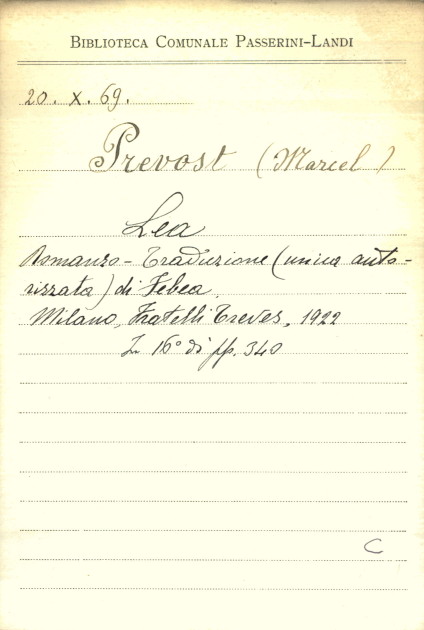 BIBLIOTECA COMUNALE PASSERINI-LANDI
20. X. 69.
Prevost (Marcel)
Lea
Romanzo - Traduzione (unica auto-
rizzata) di Febea.
Milano, Fratelli Treves, 1922
In 16° di pp. 340
C